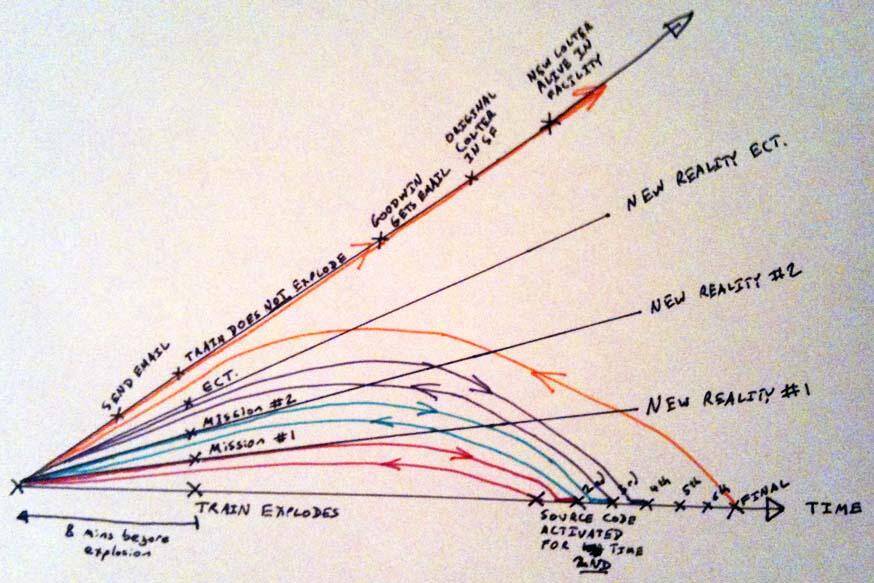 NEW COLTER
ALIVE IN
FACILITY
ORIGINAL
COLTER
IN SF
GOODWIN
GETS EMAIL
TRAIN DOES NOT EXPLODE
SEND EMAIL
NEW REALITY ECT.
NEW REALITY #2
NEW REALITY #1
ECT.
MISSION #2
MISSION #1
2nd
3rd
4th
5th
6th
FINAL
TIME
TRAIN EXPLODES
8 mins before
explosion
SOURCE CODE
ACTIVATED
FOR TIME
2ND